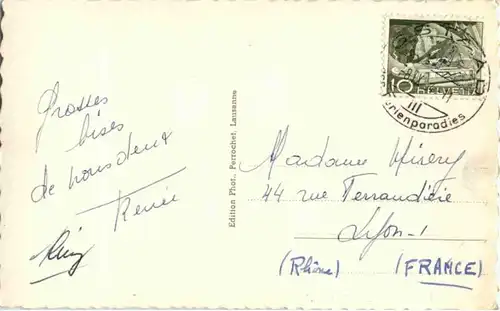 Grosses
bises
de nous deux
Renée
Edition Phot. Perrochet, Lausanne
10 HELVETIA
III
Ferienparadies
Madame Misery
44 rue Ferrandière
Lyon-1
(Rhône) (FRANCE)